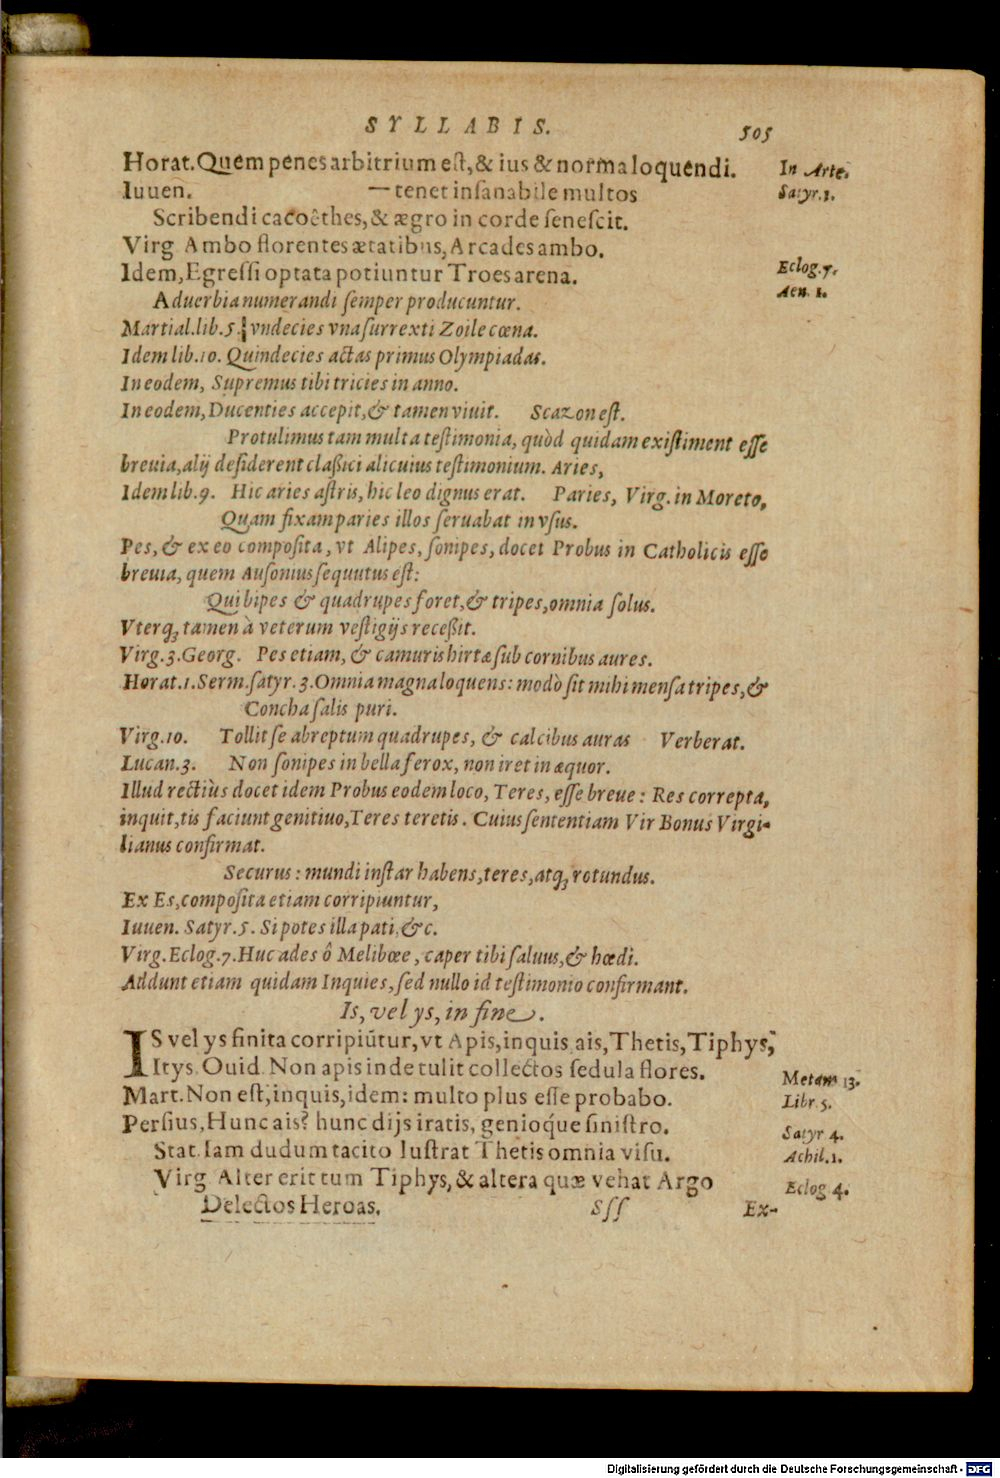 SYLLABIS. 505
Horat. Quem penes arbitrium est, & ius & norma loquendi. In Arte.
Iuuen. —tenet insanabile multos Satyr.1.
Scribendi cacoêthes, & ægro in corde senescit.
Virg Ambo florentes ætatibus, Arcades ambo.
Idem, Egressi optata potiuntur Troes arena. Eclog.7.
Aduerbia numerandi semper producuntur. Aen. 1.
Martial.lib.5. vndecies vna surrexti Zoile cœna.
Idem lib.10. Quindecies actas primus Olympiadas.
In eodem, Supremus tibi tricies in anno.
In eodem, Ducenties accepit, & tamen viuit. Scazon est.
Protulimus tam multa testimonia, quòd quidam existiment esse
breuia, alij desiderent claßici alicuius testimonium. Aries,
Idem lib.9. Hic aries astris, hic leo dignus erat. Paries, Virg. in Moreto,
Quam fixam paries illos seruabat in vsus.
Pes, & ex eo composita, vt Alipes, sonipes, docet Probus in Catholicis esse
breuia, quem Ausonius sequutus est:
Qui bipes & quadrupes foret, & tripes, omnia solus.
Vterq; tamen à veterum vestigijs receßit.
Virg.3.Georg. Pes etiam, & camuris hirtæ sub cornibus aures.
Horat.1.Serm.satyr.3. Omnia magna loquens: modò sit mihi mensa tripes, &
Concha salis puri.
Virg.10. Tollit se abreptum quadrupes, & calcibus auras Verberat.
Lucan.3. Non sonipes in bella ferox, non iret in æquor.
Illud rectiùs docet idem Probus eodem loco, Teres, esse breue: Res correpta,
inquit, tis faciunt genitiuo, Teres teretis. Cuius sententiam Vir Bonus Virgi-
lianus confirmat.
Securus: mundi instar habens, teres, atq; rotundus.
Ex Es, composita etiam corripiuntur,
Iuuen. Satyr.5. Si potes illa pati, &c.
Virg.Eclog.7. Huc ades ô Melibœe, caper tibi saluus, & hœdi.
Addunt etiam quidam Inquies, sed nullo id testimonio confirmant.
Is, vel ys, in fine.
IS vel ys finita corripiūtur, vt Apis, inquis, ais, Thetis, Tiphys,
Itys. Ouid. Non apis inde tulit collectos sedula flores. Metam 13.
Mart. Non est, inquis, idem: multo plus esse probabo. Libr.5.
Persius, Hunc ais? hunc dijs iratis, genioq́ue sinistro. Satyr 4.
Stat. Iam dudum tacito lustrat Thetis omnia visu. Achil.1.
Virg Alter erit tum Tiphys, & altera quæ vehat Argo Eclog 4.
Delectos Heroas. Sss Ex-
Digitalisierung gefördert durch die Deutsche Forschungsgemeinschaft - DFG